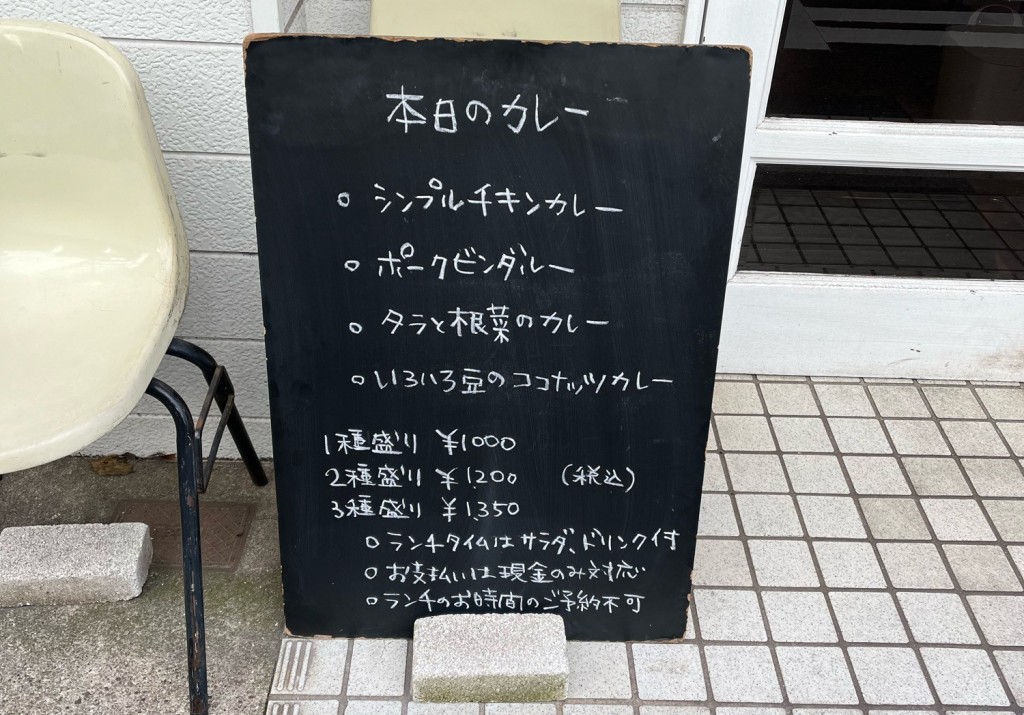 本日のカレー
○ シンプルチキンカレー
○ ポークビンダルー
○ タラと根菜のカレー
○ いろいろ豆のココナッツカレー
1種盛り ¥1000
2種盛り ¥1,200 (税込)
3種盛り ¥1,350
○ ランチタイムはサラダ、ドリンク付
○ お支払いは現金のみ対応
○ ランチのお時間のご予約不可